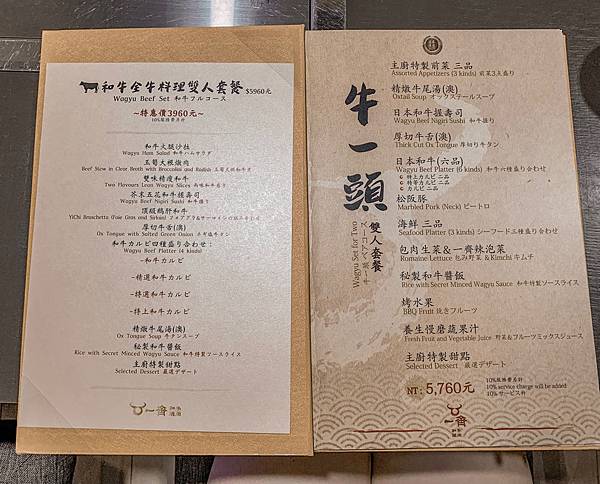 和牛全牛料理雙人套餐 $5960元
Wagyu Beef Set 和牛フルコース
~特惠價3960元~
10%服務費另計
和牛火腿沙拉
Wagyu Ham Salad 和牛ハムサラダ
玉蔔大根燉肉
Beef Stew in Clear Broth with Broccolini and Radish
雙味精瘦和牛
Two Flavours Lean Wagyu Slices
芥末五花和牛握壽司
Wagyu Beef Nigiri Sushi 和牛握り
頂級鵝肝和牛
YiChi Bruschetta (Foie Gras and Sirloin)
厚切牛舌(澳)
Ox Tongue with Salted Green Onion
和牛カルビ四種盛り合わせ：
Wagyu Beef Platter (4 kinds)
-和牛カルビ
-精選和牛カルビ
-特選和牛カルビ
-特上和牛カルビ
精燉牛尾湯(澳)
Ox Tongue Soup 牛タンスープ
秘製和牛醬飯
Rice with Secret Minced Wagyu Sauce 和牛特製ソースライス
主廚特製甜點
Selected Dessert 厳選デザート
一齊
牛一頭
雙人套餐
Wagyu Set for Two
主廚特製前菜 三品
Assorted Appetizers (3 kinds) 前菜3点盛り
精燉牛尾湯(澳)
Oxtail Soup オックステールスープ
日本和牛握壽司
Wagyu Beef Nigiri Sushi 和牛握り
厚切牛舌(澳)
Thick Cut Ox Tongue 厚切り牛タン
日本和牛(六品)
Wagyu Beef Platter (6 kinds) 和牛六種盛り合わせ
特上カルビ 二品
特等カルビ 二品
カルビ 二品
松阪豚
Marbled Pork (Neck) ピートロ
海鮮 三品
Seafood Platter (3 kinds) シーフード三種盛り合わせ
包肉生菜&一齊辣泡菜
Romaine Lettuce 包み野菜 & Kimchi キムチ
秘製和牛醬飯
Rice with Secret Minced Wagyu Sauce 和牛特製ソースライス
烤水果
BBQ Fruit 焼きフルーツ
養生慢磨蔬果汁
Fresh Fruit and Vegetable Juice 野菜&フルーツミックスジュース
主廚特製甜點
Selected Dessert 厳選デザート
NT: 5,760元
10%服務費另計
10% service charge will be added
10%サービス料
一齊